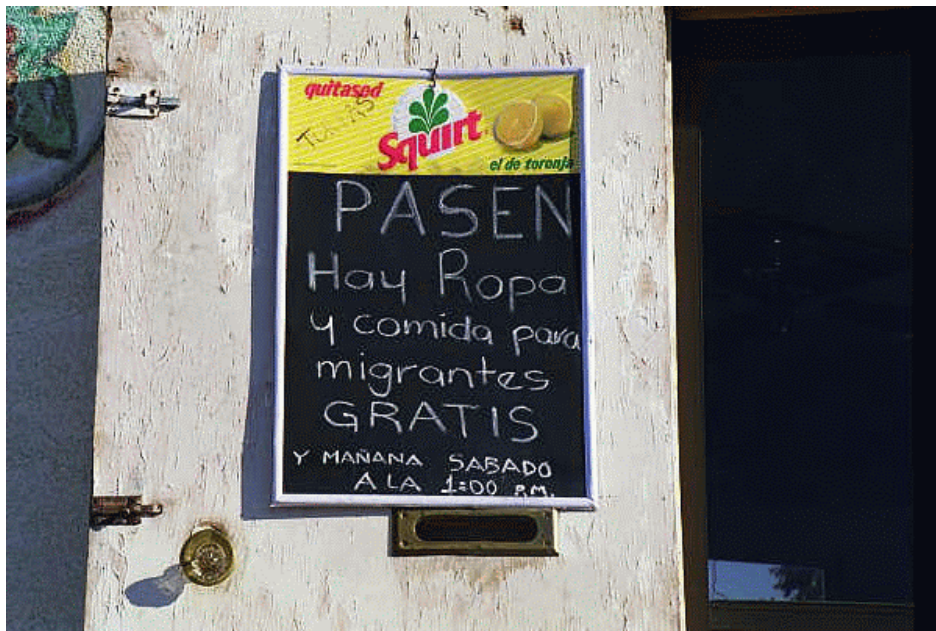 quitased
Squirt
el de toronja
PASEN
Hay Ropa
y comida para
migrantes
GRATIS
Y MAÑANA SABADO
A LA 1:00 P.M.